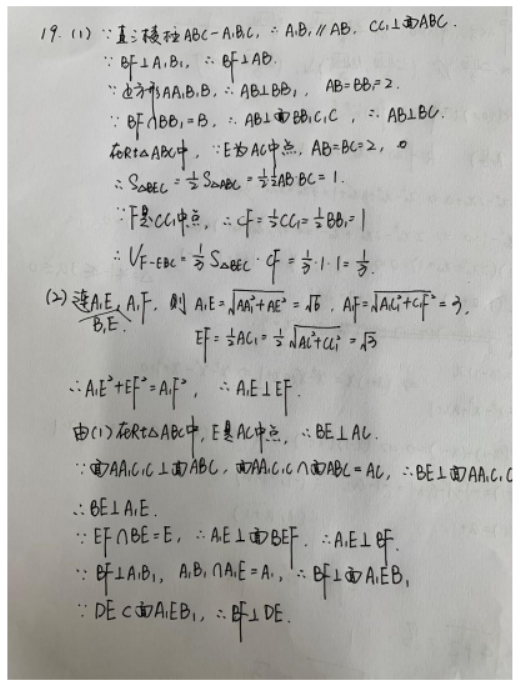 19. (1) ∵直三棱柱ABC-A₁B₁C₁, ∴A₁B₁∥AB, CC₁⊥面ABC.
∵BF⊥A₁B₁, ∴BF⊥AB.
∵正方形AA₁B₁B, ∴AB⊥BB₁, AB=BB₁=2.
∵BF∩BB₁=B, ∴AB⊥面BB₁C₁C, ∴AB⊥BC.
在Rt△ABC中, ∵E为AC中点, AB=BC=2,
∴S△BEC=½S△ABC=½·½AB·BC=1.
∵F是CC₁中点, ∴CF=½CC₁=½BB₁=1
∴V_F-EBC=⅓S△BEC·CF=⅓·1·1=⅓.
(2) 连A₁E, A₁F, 则A₁E=√(AA₁²+AE²)=√6, A₁F=√(A₁C₁²+C₁F²)=3,
B₁E.
EF=½AC₁=½√(AC²+CC₁²)=√3
∴A₁E²+EF²=A₁F², ∴A₁E⊥EF.
由(1)在Rt△ABC中, E是AC中点, ∴BE⊥AC.
∵面AA₁C₁C⊥面ABC, 面AA₁C₁C∩面ABC=AC, ∴BE⊥面AA₁C₁C
∴BE⊥A₁E.
∵EF∩BE=E, ∴A₁E⊥面BEF. ∴A₁E⊥BF.
∵BF⊥A₁B₁, A₁B₁∩A₁E=A₁, ∴BF⊥面A₁EB₁
∵DE⊂面A₁EB₁, ∴BF⊥DE.